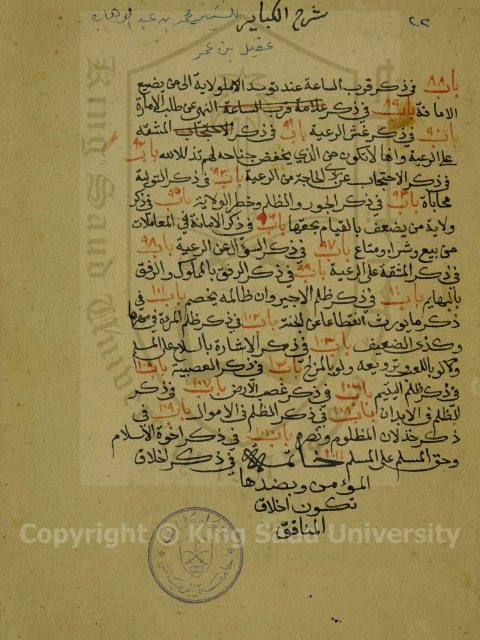 ٢٢
شرح الكباير للشيخ محمد بن عبد الوهاب
عقيل بن عمر
باب ٨٨ في ذكر قرب الساعة عند توسد الامر ولاية الى من يضيع
الامانة باب ٨٩ في ذكر علامة قرب الساعة النهي عن طلب الامارة
باب ٩٠ في ذكر غش الرعية باب ٩١ في ذكر الاحتجاب الشفقة
على الرعية وانها لا تكون من الذي يخفض جناحه لهم لله باب ٩٢
في ذكر الاحتجاب عن الحاجة من الرعية باب ٩٣ في ذكر التولية
محاباة باب ٩٤ في ذكر الجور والظلم وخطر الولاية باب ٩٥ في ذكر
ولاية من يضعف بالقيام بحقها باب ٩٦ في ذكر الامانة في المعاملات
من بيع وشراء ومتاع باب ٩٧ في ذكر السؤال عن الرعية باب ٩٨
في ذكر المشقة على الرعية باب ٩٩ في ذكر الرفق بالمملوك والرفق
بالبهايم باب في ذكر ظلم الاجير وان ظالمه يخصم باب ١٠١ في
ذكر ما يورث انقطاعا عن الجنة باب ١٠٢ في ذكر ظلم المرءة في مهرها
وكذى الضعيف باب ١٠٣ في ذكر الاشارة بالسلاح على المسلم
ولو بالمزاح باب في ذكر العصبية باب ١٠٥
في ذكر ظلم اليتيم باب ١٠٦ في ذكر غصب الارض باب ١٠٧ في ذكر
الظلم في الابدان باب ١٠٨ في ذكر الظلم في الاموال باب ١٠٩ في
ذكر خذلان المظلوم ونصره باب في ذكر اخوة الاسلام
وحق المسلم على المسلم خاتمة في ذكر اخلاق
المؤمن وبضدها
تكون اخلاق
المنافق
Copyright © King Saud University
King Saud University